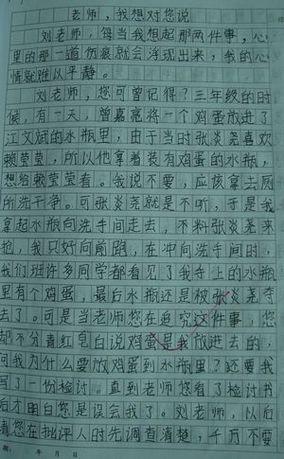 老师,我想对您说
刘老师,每当我想起那两件事,心
里的那一道伤痕就会浮现出来,我的心
情就难以平静。
刘老师,您可曾记得?三年级的时
候,有一天,曾嘉亮将一个鸡蛋放进了
江文斌的水瓶里,由于当时张炎尧喜欢
赖莹莹,所以他拿着装有鸡蛋的水瓶,
想给赖莹莹看。我说不要,应该拿去厕
所洗干净。可张炎尧就是不听,于是我
拿起水瓶向洗手间走去,不料张炎尧来
抢,我只好向前跑,在冲向洗手间时,
我们班许多同学都看见了我手上的水瓶
里有个鸡蛋,最后水瓶还是被张炎尧夺
去了。可是当老师您在追究这件事,您
却不分青红皂白说鸡蛋是我放进去的,
问我为什么要放鸡蛋到水瓶里?还要我
写了一份检讨。直到老师您看了检讨书
后才明白您是误会我了。刘老师,以后
请您在批评人时先调查清楚,千万不要
年 月 日